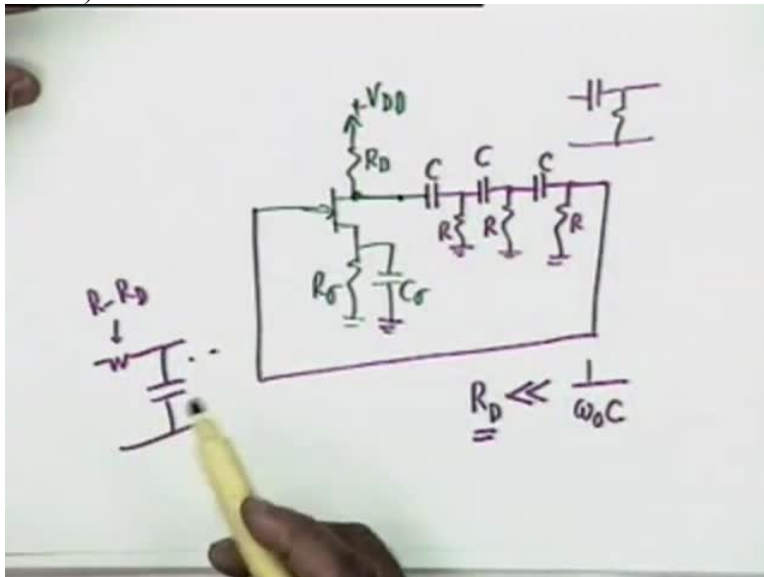 +VDD
RD
C
C
C
R
R
R
Rσ
Cσ
R-RD
RD << 1/ω₀C